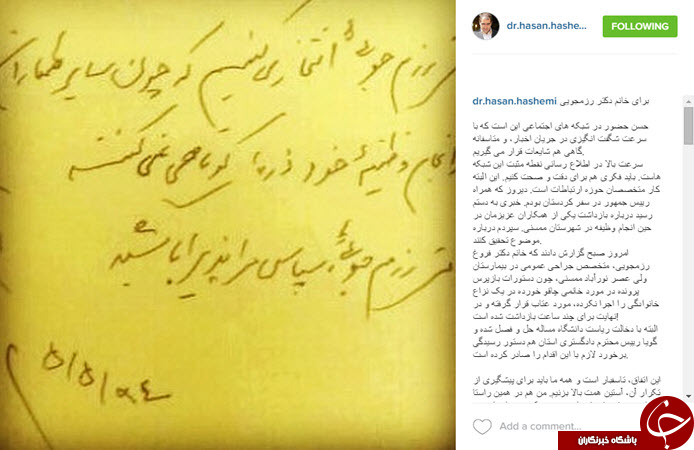 dr.hasan.hashe...
FOLLOWING
dr.hasan.hashemi برای خانم دکتر رزمجویی
حسن حضور در شبکه های اجتماعی این است که با
سرعت شگفت انگیزی در جریان اخبار، و متاسفانه
گاهی هم شایعات قرار می گیریم.
سرعت بالا در اطلاع رسانی نقطه مثبت این شبکه
هاست. باید فکری هم برای دقت و صحت کنیم. این البته
کار متخصصان حوزه ارتباطات است. دیروز که همراه
رییس جمهور در سفر کردستان بودم، خبری به دستم
رسید درباره بازداشت یکی از همکاران عزیزمان در
حین انجام وظیفه در شهرستان ممسنی. سپردم درباره
موضوع تحقیق کنند.
امروز صبح گزارش دادند که خانم دکتر فروغ
رزمجویی، متخصص جراحی عمومی در بیمارستان
ولی عصر نورآباد ممسنی، چون دستورات بازپرس
پرونده در مورد خانمی چاقو خورده در یک نزاع
خانوادگی را اجرا نکرده، مورد عتاب قرار گرفته و در
نهایت برای چند ساعت بازداشت شده است!
البته با دخالت ریاست دانشگاه مساله حل و فصل شده و
گویا رییس محترم دادگستری استان هم دستور رسیدگی
برخورد لازم با این اقدام را صادر کرده است.
این اتفاق، تاسفبار است و همه ما باید برای پیشگیری از
تکرار آن، آستین همت بالا بزنیم. من هم در همین راستا
Add a comment...
رزم جوئی افتخار می کنیم که چون سایر
انجام وظیفه خود ذره ای کوتاهی نمی کنند
رزم جوئی سپاس مرا پذیرا باشید
۵/۵/۹۴
باشگاه خبرنگاران